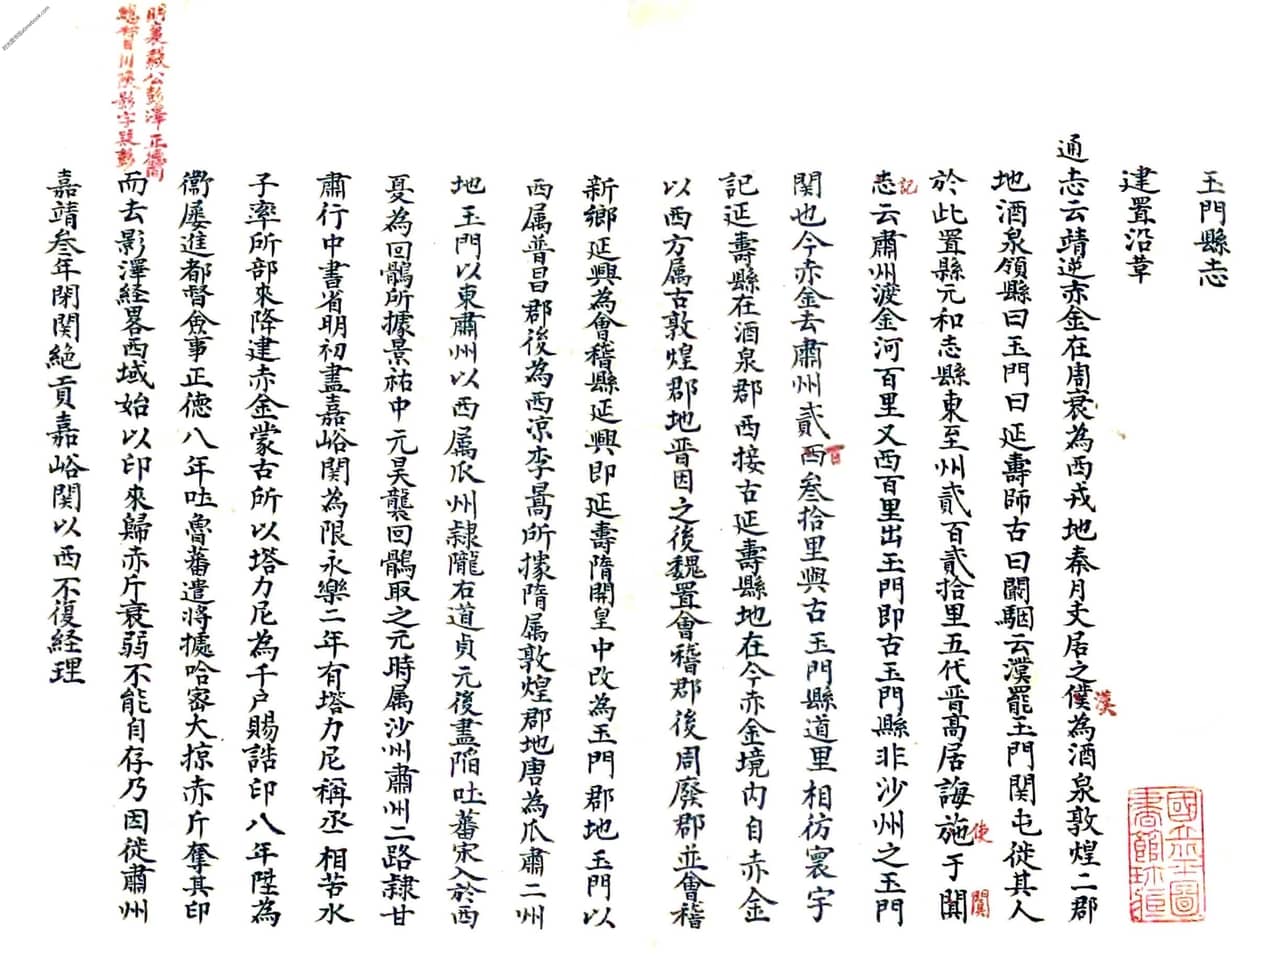 玉門縣志
建置沿革
通志云靖逆赤金在周衰為西戎地秦月支居之僕為酒泉敦煌二郡
漢
地酒泉領縣曰玉門曰延壽師古曰闞駰云漢罷玉門関屯徙其人
於此置縣元和志縣東至州貳百貳拾里五代晉髙居誨施于闐
使
闐
志云肅州渡金河百里又西百里出玉門即古玉門縣非沙州之玉門
記
関也今赤金去肅州貳西叁拾里與古玉門縣道里相彷寰宇
百
記延壽縣在酒泉郡西接古延壽縣地在今赤金境内自赤金
以西方属古敦煌郡地晋因之後魏置會稽郡後周廢郡並會稽
新鄉延興為會稽縣延興即延壽隋開皇中改為玉門郡地玉門以
西属普昌郡後為西凉李暠所據隋属敦煌郡地唐為爪肅二州
地玉門以東肅州以西属爪州隷隴右道貞元後盡陷吐蕃宋入於西
夏為回鶻所據景祐中元昊襲回鶻取之元時属沙州肅州二路隷甘
肅行中書省明初畫嘉峪関為限永樂二年有塔力尼稱丞相苦水
子率所部來降建赤金蒙古所以塔力尼為千户賜誥印八年陞為
衞屡進都督僉事正德八年吐魯蕃遣将據哈宻大掠赤斤奪其印
而去影澤経畧西域始以印來歸赤斤衰弱不能自存乃因徙肅州
嘉靖叁年閉関絶貢嘉峪関以西不復経理
明襄毅公彭澤正德間
總督川陝影字是彭